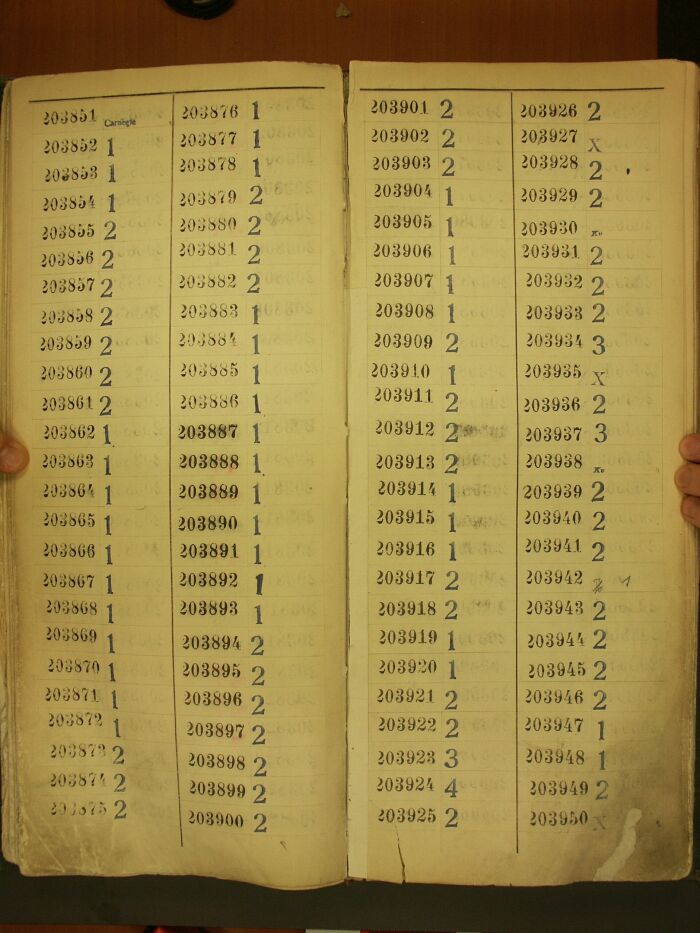 203851 Carnegie
203852 1
203853 1
203854 1
203855 2
203856 2
203857 2
203858 2
203859 2
203860 2
203861 2
203862 1
203863 1
203864 1
203865 1
203866 1
203867 1
203868 1
203869 1
203870 1
203871 1
203872 1
203873 2
203874 2
203875 2
203876 1
203877 1
203878 1
203879 2
203880 2
203881 2
203882 2
203883 1
203884 1
203885 1
203886 1
203887 1
203888 1
203889 1
203890 1
203891 1
203892 1
203893 1
203894 2
203895 2
203896 2
203897 2
203898 2
203899 2
203900 2
203901 2
203902 2
203903 2
203904 1
203905 1
203906 1
203907 1
203908 1
203909 2
203910 1
203911 2
203912 2
203913 2
203914 1
203915 1
203916 1
203917 2
203918 2
203919 1
203920 1
203921 2
203922 2
203923 3
203924 4
203925 2
203926 2
203927 X
203928 2
203929 2
203930
203931 2
203932 2
203933 2
203934 3
203935 X
203936 2
203937 3
203938
203939 2
203940 2
203941 2
203942
203943 2
203944 2
203945 2
203946 2
203947 1
203948 1
203949 2
203950 X